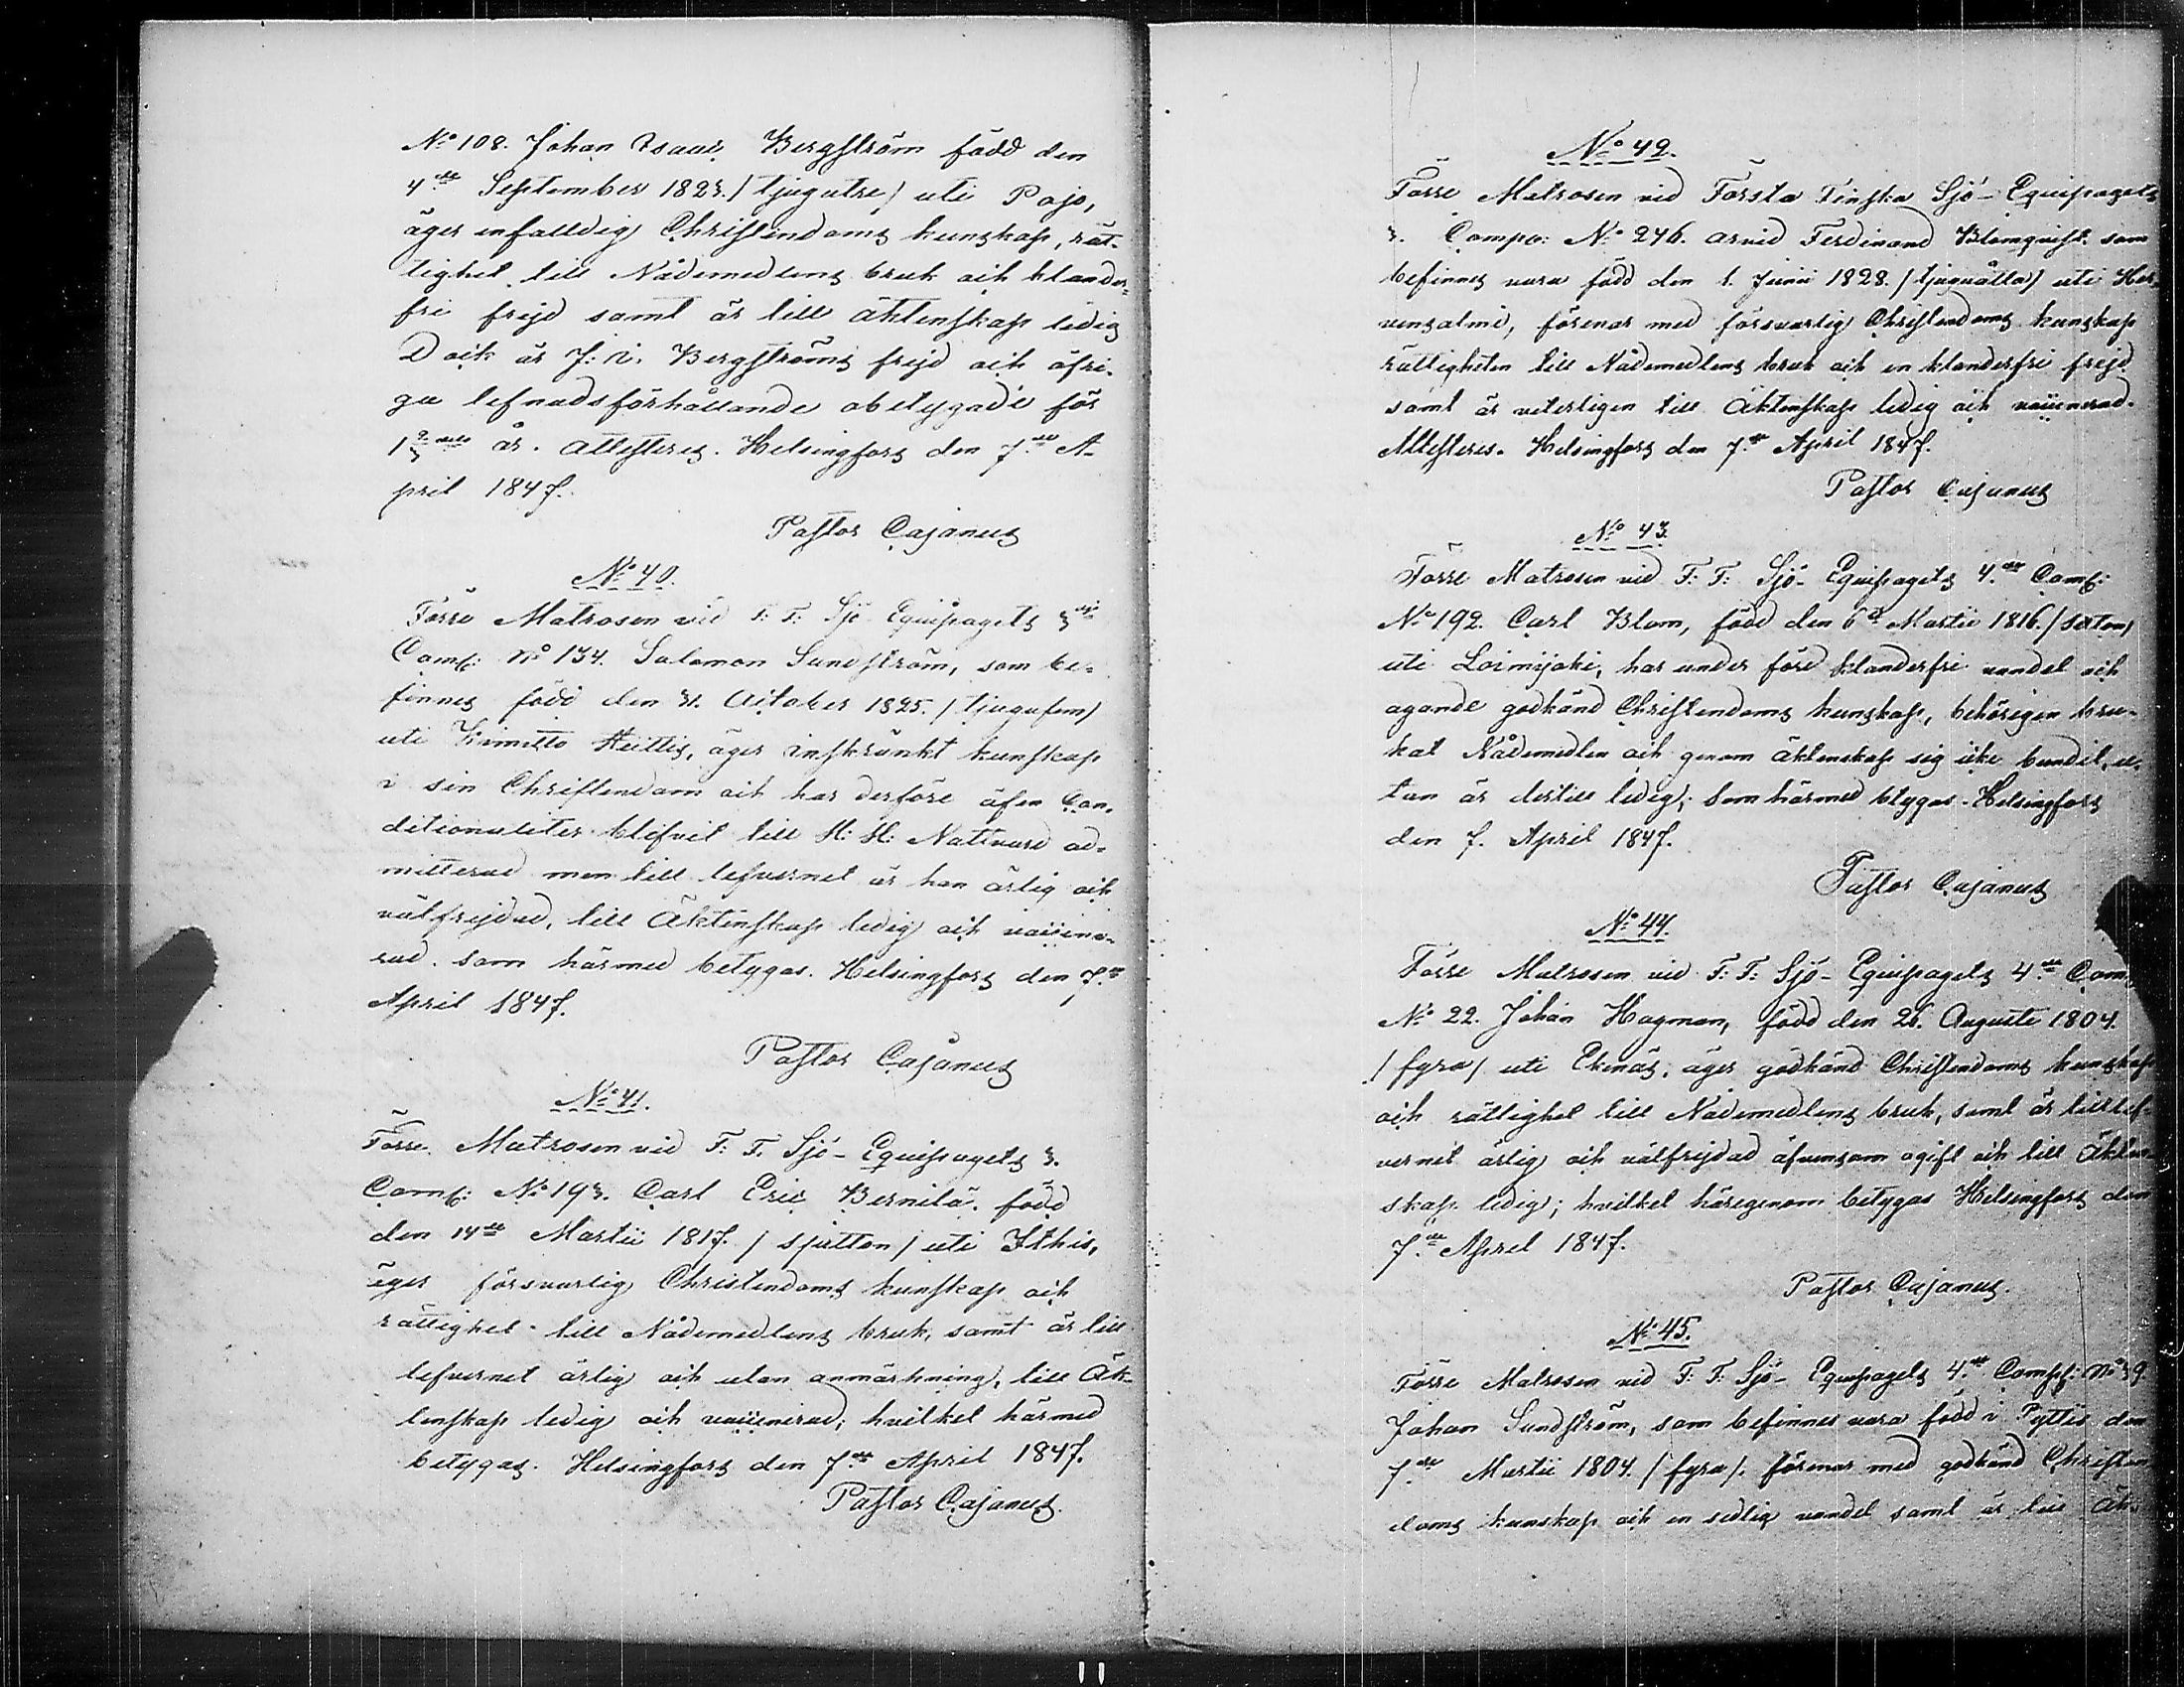 No 108. Johan Isaac Bergström född den
4de September 1823. /tjugutre/ uti Pojo,
äger enfalldig Christendoms kunskap, rät-
tighet till Nådemedlens bruk och klander-
fri frejd samt är till äktenskap ledig
Dock är J: I. Bergströms frejd och öfri-
ga lefnadsförhållande obetygade för
år. Attesteres. Helsingfors den 7de A-
pril 1847.
Pastor Cajanus
No 40.
Förre Matrosen vid F: F: Sjö Equipagets 3dje
Comp: No 134. Salomon Sundström, som be-
finnes född den 31. October 1825. /tjugufem/
uti Kimitto Hiittis, äger inskränkt kunskap
i sin Christendom och har derföre äfven Con-
ditionaliter blifvit till H: H: Nattvard ad-
mitterad men till lefvernet är han ärlig och
välfrejdad, till Äktenskap ledig och vaccine-
rad. som härmed betygas. Helsingfors den 7de
April 1847.
Pastor Cajanus
No 41.
Förre Matrosen vid F: F. Sjö-Equipagets 3.
Comp: No 193. Carl Eric Bernilä. född
den 14de Martii 1817. /sjutton/ uti Itthis,
äger försvarlig Christendoms kunskap och
rättighet till Nådemedlens bruk, samt är till
lefvernet ärlig och utan anmärkning, till Äk-
tenskap ledig och vaccinerad; hvilket härmed
betygas. Helsingfors den 7de April 1847.
Pastor Cajanus.
No 42.
Förre Matrosen vid Första Finska Sjö-Equipagets
3. Compa: No 246. Arvid Ferdinand Blomquist som
befinnes vara född den 1. Junii 1828. /tjuguåtta/ uti Her-
vensalmi, förenar med försvarlig Christendoms kunskap
rättigheten till Nådemedlens bruk och en klanderfri frejd
samt är veterligen till Äktenskap ledig och vaccinerad.
Attesteres. Helsingfors den 7de April 1847.
Pastor Cajanus
No 43.
Förre Matrosen vid F: F: Sjö-Equipagets 4de Comp:
No 192. Carl Blom, född den 6te Martii 1816. /sexton/
uti Loimijoki, har under förd klanderfri vandel och
ägande godkänd Christendoms kunskap, behörigen bru-
kat Nådemedlen och genom äktenskap sig icke bundit, u-
tan är dertill ledig; Som härmed betygas. Helsingfors
den 7. April 1847.
Pastor Cajanus
No 44.
Förre Matrosen vid F: F: Sjö-Equipagets 4de Comp
No 22. Johan Hagman, född den 26. Augusti 1804.
/fyra/ uti Ekenäs, äger godkänd Christendoms kunskap
och rättighet till Nådemedlens bruk, samt är till lef-
vernet ärlig och välfrejdad äfvensom ogift och till Äkten-
skap ledig; hvilket härigenom betygas Helsingfors den
7de April 1847.
Pastor Cajanus.
No 45.
Förre Matrosen vid F: F: Sjö-Equipagets 4de Comp: No 39
Johan Sundström, som befinnes vara född i Pyttis den
7de Martii 1804. /fyra/. förenar med godkänd Christen
doms kunskap och en sedlig vandel samt är till Äk-
11